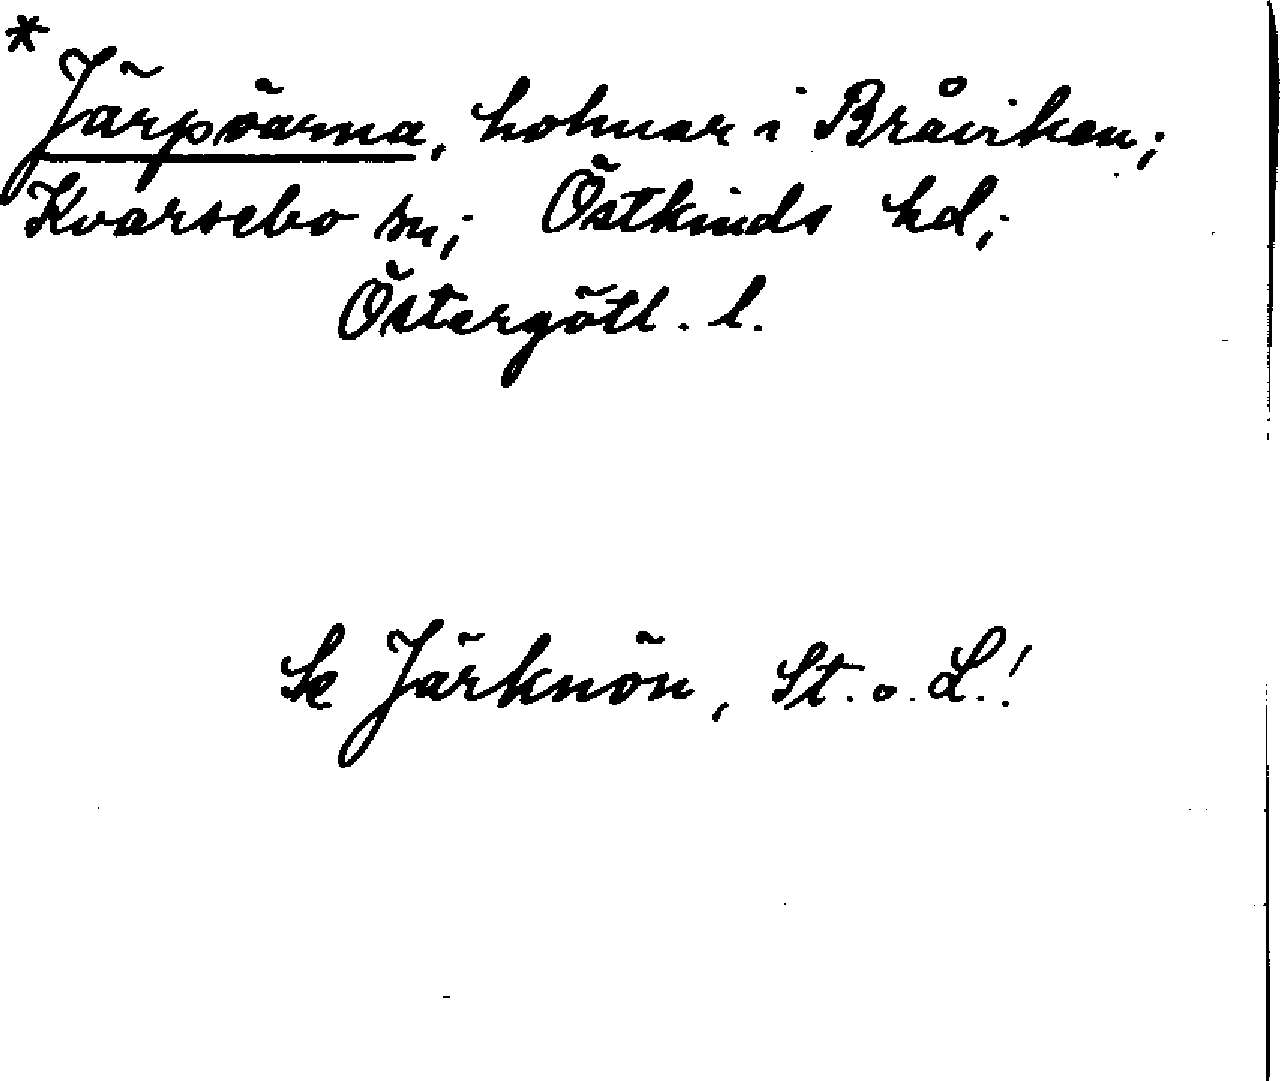 *
Järpöarna, holmar i Bråviken;
Kvarsebo sn; Östkinds hd;
Östergötl. l.
Se Järknön, St. o. L.!